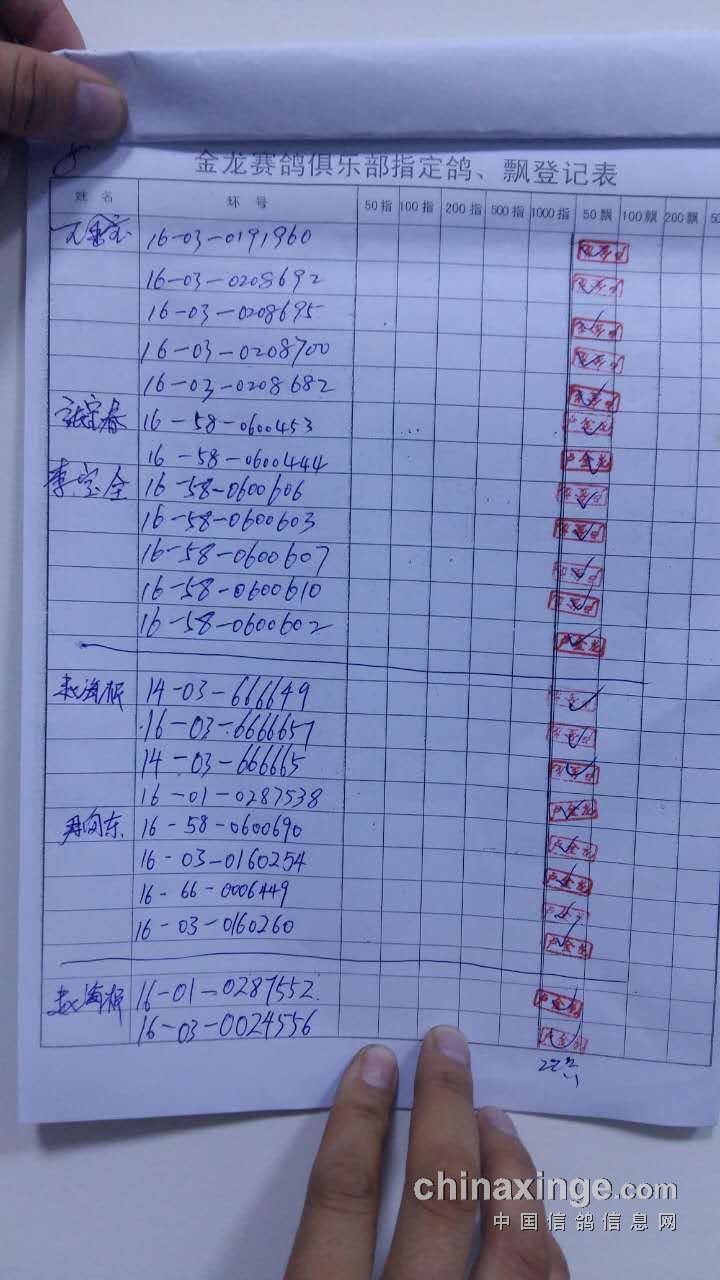 金龙赛鸽俱乐部指定鸽、飘登记表
姓 名 环 号 50指 100指 200指 500指 1000指 50飘 100飘 200飘 50
16-03-0191960
16-03-0208692
16-03-0208695
16-03-0208700
16-03-0208682
张宗春 16-58-0600453
16-58-0600444
李宝全 16-58-0600606
16-58-0600603
16-58-0600607
16-58-0600610
16-58-0600602
赵海根 14-03-666649
16-03-6666657
14-03-666665
16-01-0287538
尹向东 16-58-0600690
16-03-0160254
16-66-0006449
16-03-0160260
赵海根 16-01-0287552
16-03-0024556
chinaxinge.com
中国信鸽信息网